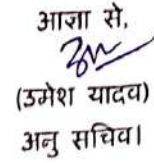 आज्ञा से,
(उमेश यादव)
अनु सचिव।